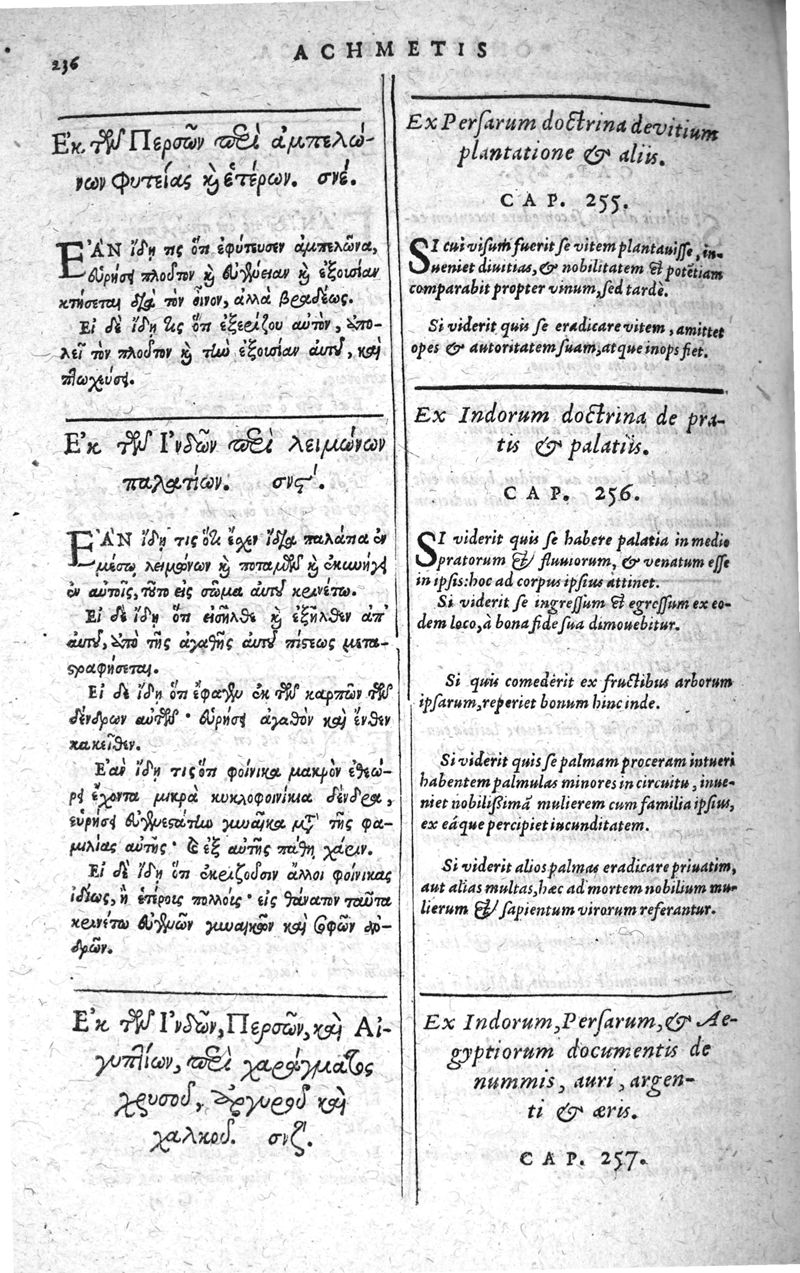 236
ACHMETIS
Ἐκ τῶν Περσῶν περὶ ἀμπελώ-
νων φυτείας καὶ ἑτέρων. σνέ.
ἘΑΝ ἴδῃ τις ὅτι ἐφύτευσεν ἀμπελῶνα,
εὑρήσει πλοῦτον καὶ εὐγένειαν καὶ ἐξουσίαν
κτήσεται διὰ τὸν οἶνον, ἀλλὰ βραδέως.
Εἰ δὲ ἴδῃ τις ὅτι ἐξερίζου αὐτὸν, ἀπο-
λεῖ τὸν πλοῦτον καὶ τὴν ἐξουσίαν αὐτοῦ, καὶ
πτωχεύσει.
Ἐκ τῶν Ἰνδῶν περὶ λειμώνων
παλατίων. σνϛʹ.
ἘΑΝ ἴδῃ τις ὅτι ἔχει ἴδια παλάτια ἐν
μέσῳ λειμώνων καὶ ποταμῶν καὶ ἐκυνήγει
ἐν αὐτοῖς, τοῦτο εἰς σῶμα αὐτοῦ κρινέτω.
Εἰ δὲ ἴδῃ ὅτι εἰσῆλθε καὶ ἐξῆλθεν ἀπ'
αὐτοῦ, ἀπὸ τῆς ἀγαθῆς αὐτοῦ πίστεως μετα-
στραφήσεται.
Εἰ δὲ ἴδῃ ὅτι ἔφαγεν ἐκ τῶν καρπῶν τῶν
δένδρων αὐτῶν· εὑρήσει ἀγαθὸν καὶ ἔνθεν
κακεῖθεν.
Ἐὰν ἴδῃ τις ὅτι φοίνικα μακρὸν ἐθεώ-
ρει ἔχοντα μικρὰ κυκλοφοινίκια δένδρα,
εὑρήσει εὐγενεστάτην γυναῖκα μετὰ τῆς φα-
μιλίας αὐτῆς· καὶ ἐξ αὐτῆς πάθῃ χάριν.
Εἰ δὲ ἴδῃ ὅτι ἐκριζοῦσιν ἄλλοι φοίνικας
ἰδίως, ἢ ἑτέροις πολλοῖς· εἰς θάνατον ταῦτα
κρινέτω εὐγενῶν γυναικῶν καὶ σοφῶν ἀν-
δρῶν.
Ἐκ τῶν Ἰνδῶν, Περσῶν, καὶ Αἰ-
γυπτίων, περὶ χαράγματος
χρυσοῦ, ἀργυροῦ καὶ
χαλκοῦ. σνζʹ.
Ex Persarum doctrina de vitium
plantatione & aliis.
CAP. 255.
SI cui visum fuerit se vitem plantauisse, in-
ueniet diuitias, & nobilitatem & potẽtiam
comparabit propter vinum, sed tardè.
Si viderit quis se eradicare vitem, amittet
opes & autoritatem suam, atque inops fiet.
Ex Indorum doctrina de pra-
tis & palatiis.
CAP. 256.
SI viderit quis se habere palatia in medio
pratorum & fluuiorum, & venatum esse
in ipsis: hoc ad corpus ipsius attinet.
Si viderit se ingressum & egressum ex eo-
dem loco, à bona fide sua dimouebitur.
Si quis comederit ex fructibus arborum
ipsarum, reperiet bonum hinc inde.
Si viderit quis se palmam proceram intueri
habentem palmulas minores in circuitu, inue-
niet nobilissimã mulierem cum familia ipsius,
ex eáque percipiet iucunditatem.
Si viderit alios palmas eradicare priuatim,
aut alias multas, hæc ad mortem nobilium mu-
lierum & sapientum virorum referantur.
Ex Indorum, Persarum, & Ae-
gyptiorum documentis de
nummis, auri, argen-
ti & æris.
CAP. 257.